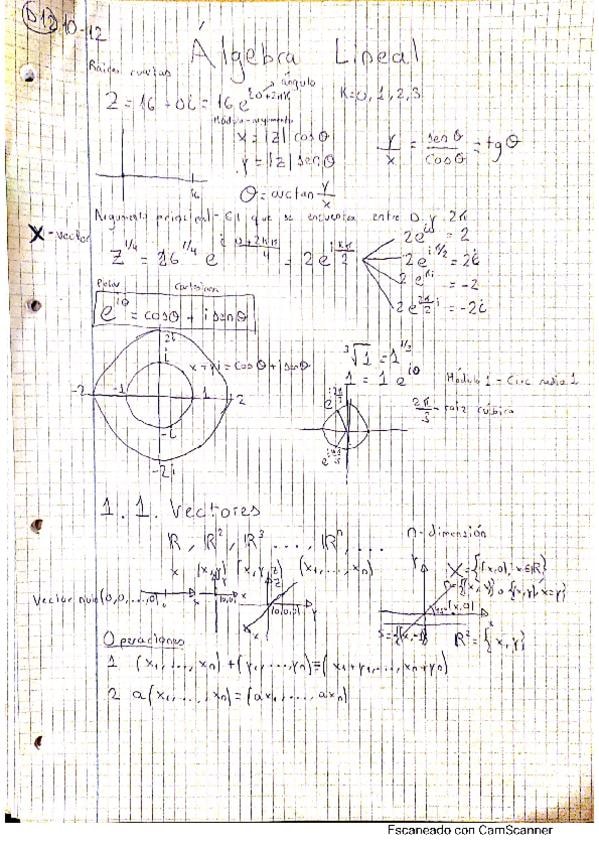 D12 10-12
Álgebra Lineal
Raíces
ángulo
Z = 16 + 0i = 16 e^{i0+2πK} K=0, 1, 2, 3
Módulo-argumento
x = |z| cosθ
y = |z| senθ
y/x = senθ/cosθ = tgθ
16
θ = arctan y/x
Argumento principal - El que se encuentra entre 0 y 2π
X - vector
Z^{1/4} = 16^{1/4} e^{i (0+2Kπ)/4} = 2e^{i Kπ/2}
2e^{i0} = 2
2e^{iπ/2} = 2i
2e^{πi} = -2
2e^{3π/2 i} = -2i
Polar Cartesiana
e^{iθ} = cosθ + i senθ
2i
i
x + yi = cosθ + i senθ
-2 -1 1 2
-i
-2i
³√1 = 1^{1/3}
1 = 1 e^{i0} Módulo 1 - Circ radio 1
2π/3 - raíz cúbica
e^{i 2π/3}
e^{i 4π/3}
1.1. Vectores
n-dimensión
R, R², R³ ..., Rⁿ, ...
x (x,y) (x,y,z) (x₁, ..., xₙ)
X = {(x,0), x∈R}
Vector nulo (0,0,...,0)
(0,0) (0,0,0)
(x,0)
R² = {x, y}
Operaciones
1 (x₁, ..., xₙ) + (y₁, ..., yₙ) = (x₁+y₁, ..., xₙ+yₙ)
2 a(x₁, ..., xₙ) = (ax₁, ..., axₙ)
Escaneado con CamScanner